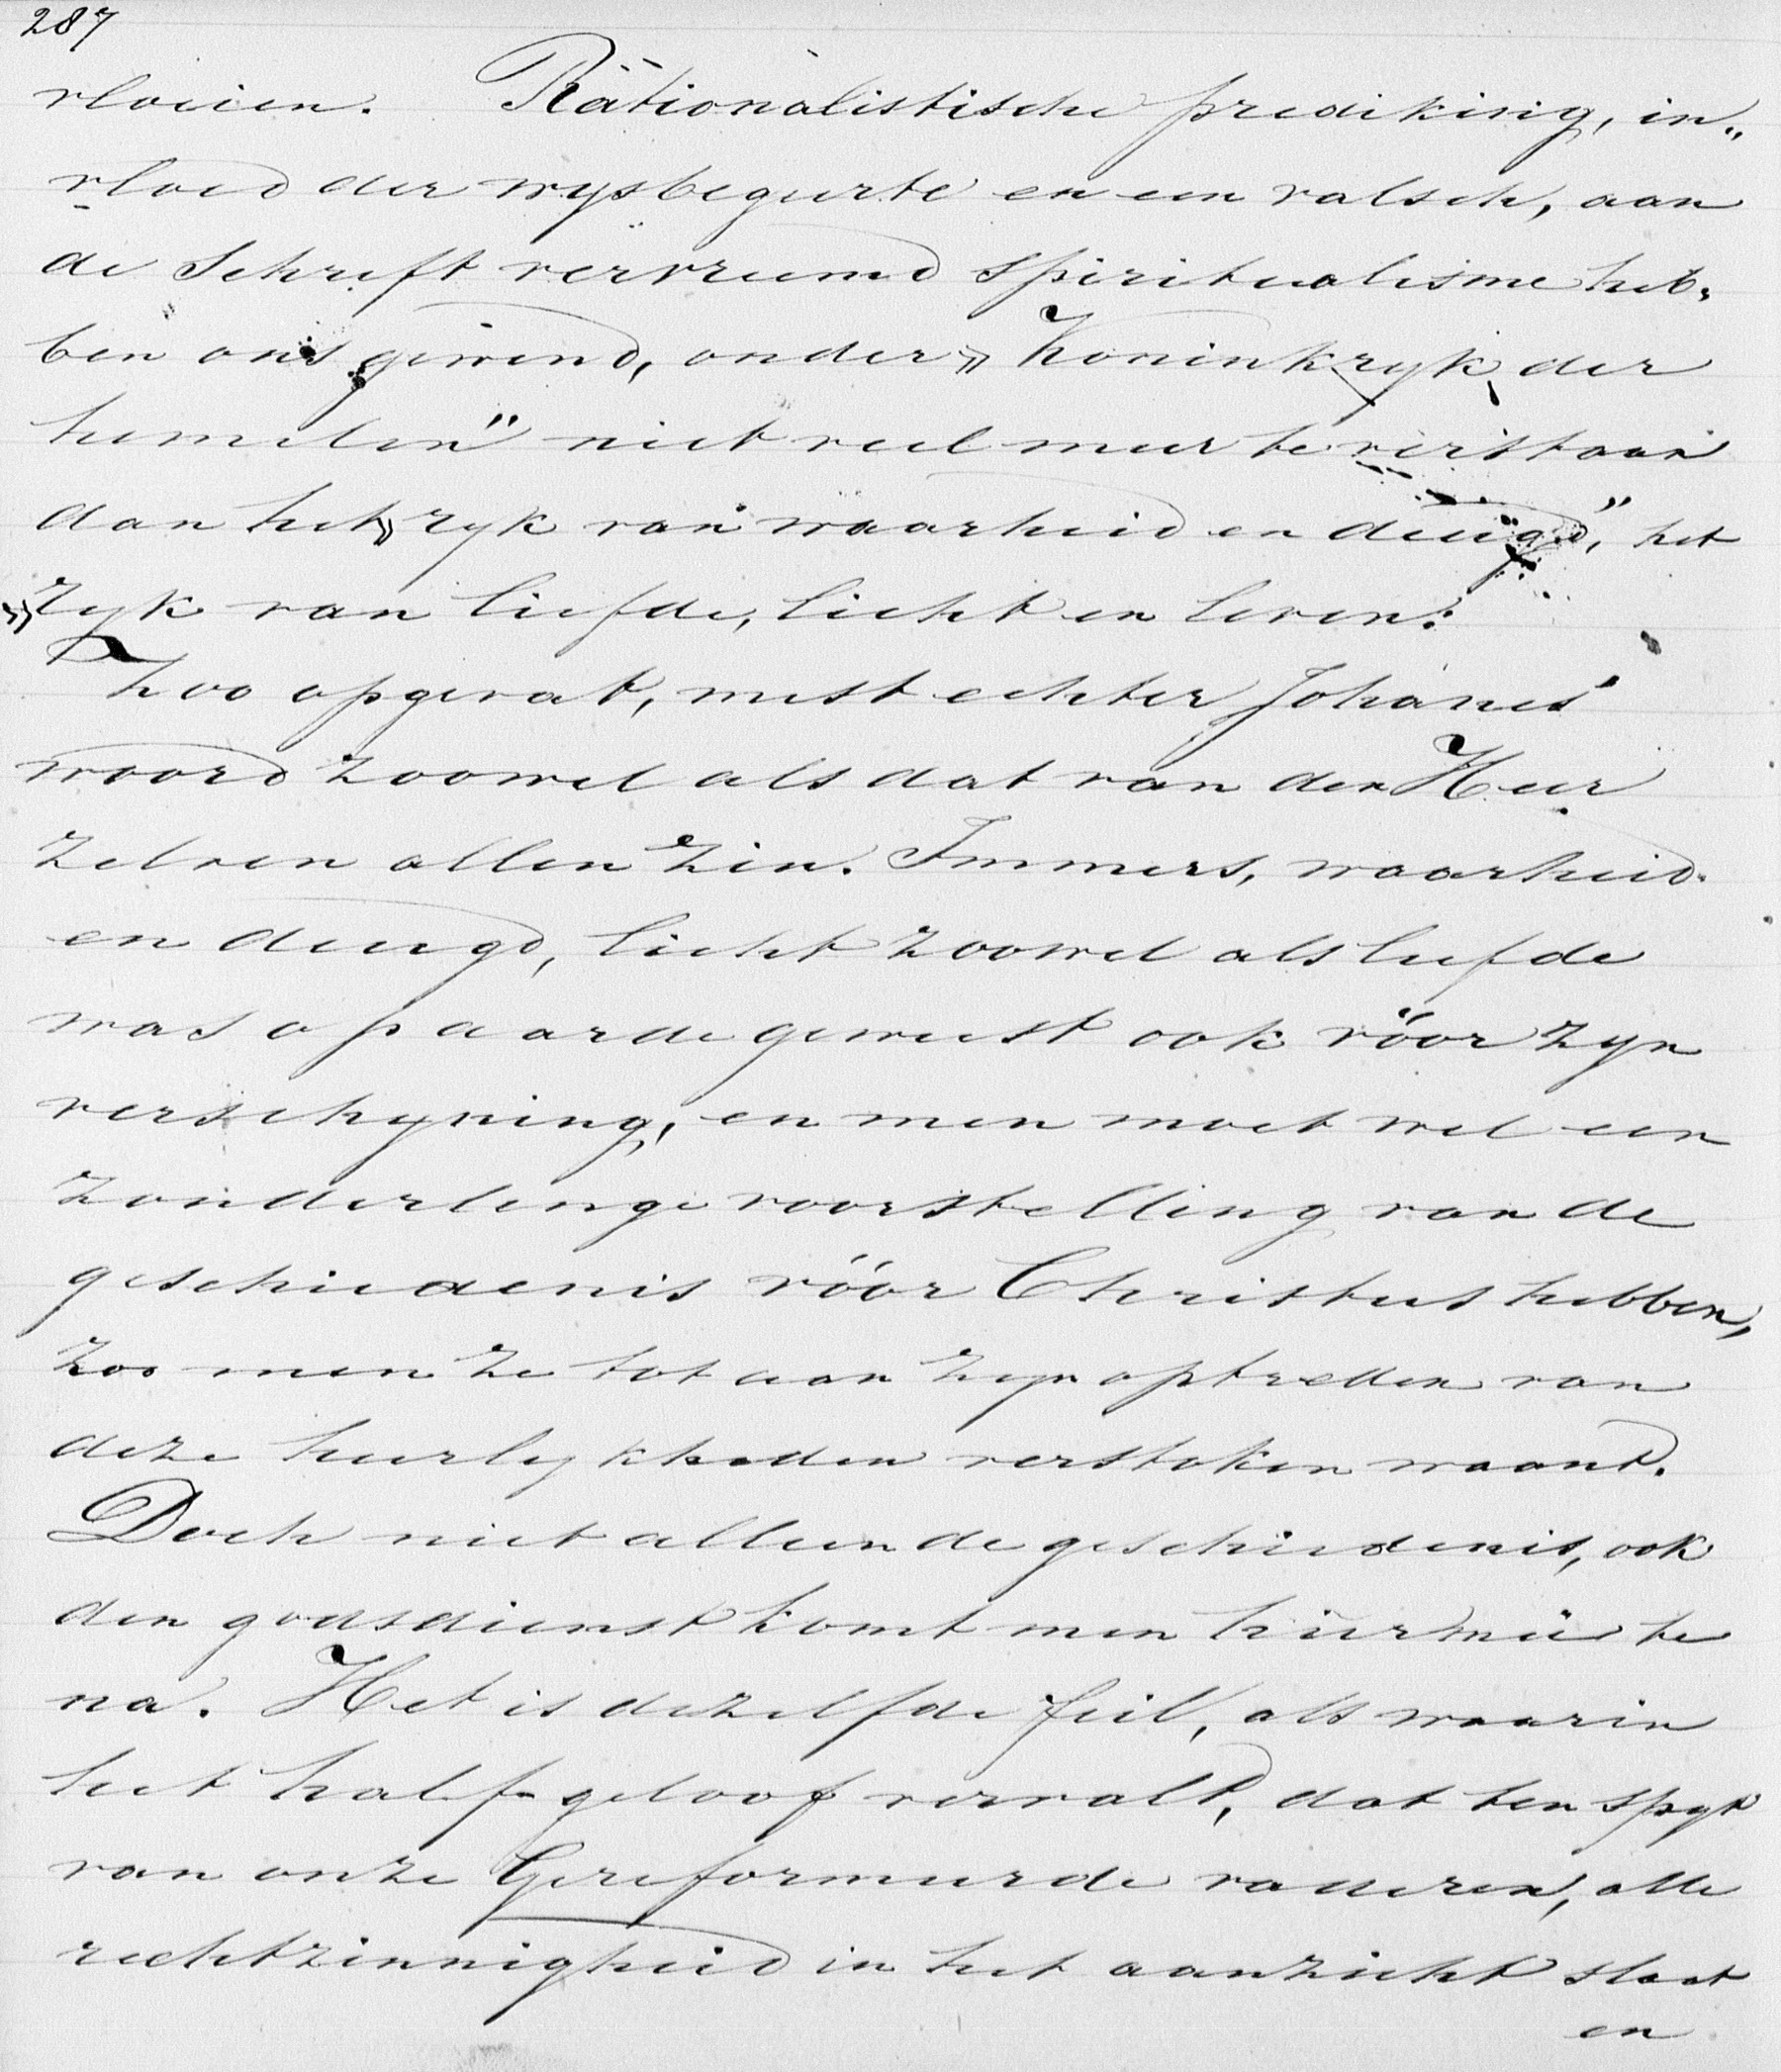 287
vloeien. Rationalistische prediking, in„
vloed der wysbegeerte en een valsch, aan
de Schrift vervreemd spiritualisme heb„
ben ons gewend, onder „Koninkryk der
hemelen" niet veel meer te verstaan
dan het „ryk van waarheid en deugd," het
„ryk van liefde, licht en leven."
Zoo opgevat, mist echter Johanes'
woord zoowel als dat van den Heer
zelven allen zin. Immers, waarheid
en deugd, licht zoowel als liefde
was op aarde geweest ook vóór zyn
verschyning, en men moet wel een
zonderlinge voorstelling van de
geschiedenis vóór Christus hebben,
zoo men ze tot aan zyn optreden van
deze heerlykheden verstoken waant.
Doch niet alleen de geschiedenis, ook
den godsdienst komt men hiermeê te
na. Het is dezelfde feil, als waarin
het half-geloof vervalt, dat ten spyt
van onze Gereformeerde vaderen, alle
rechtzinnigheid in het aanzicht slaat
en